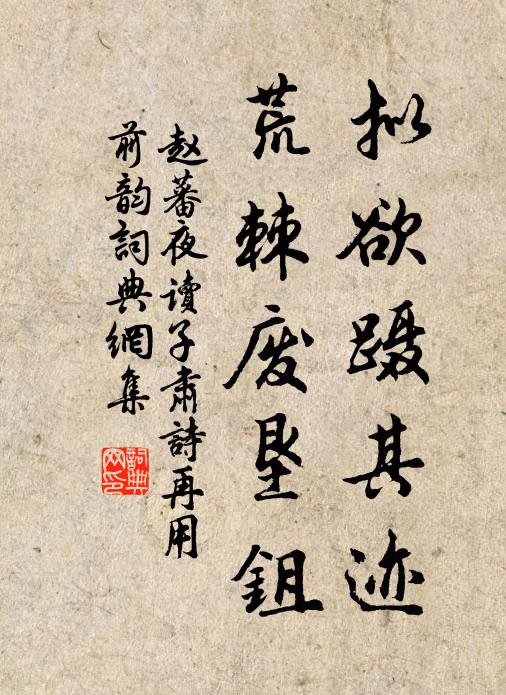 拟欲蹑其迹
荒棘废垦鉏
赵蕃夜读子肃詩再用
前韵詞典網集
詞典
网印